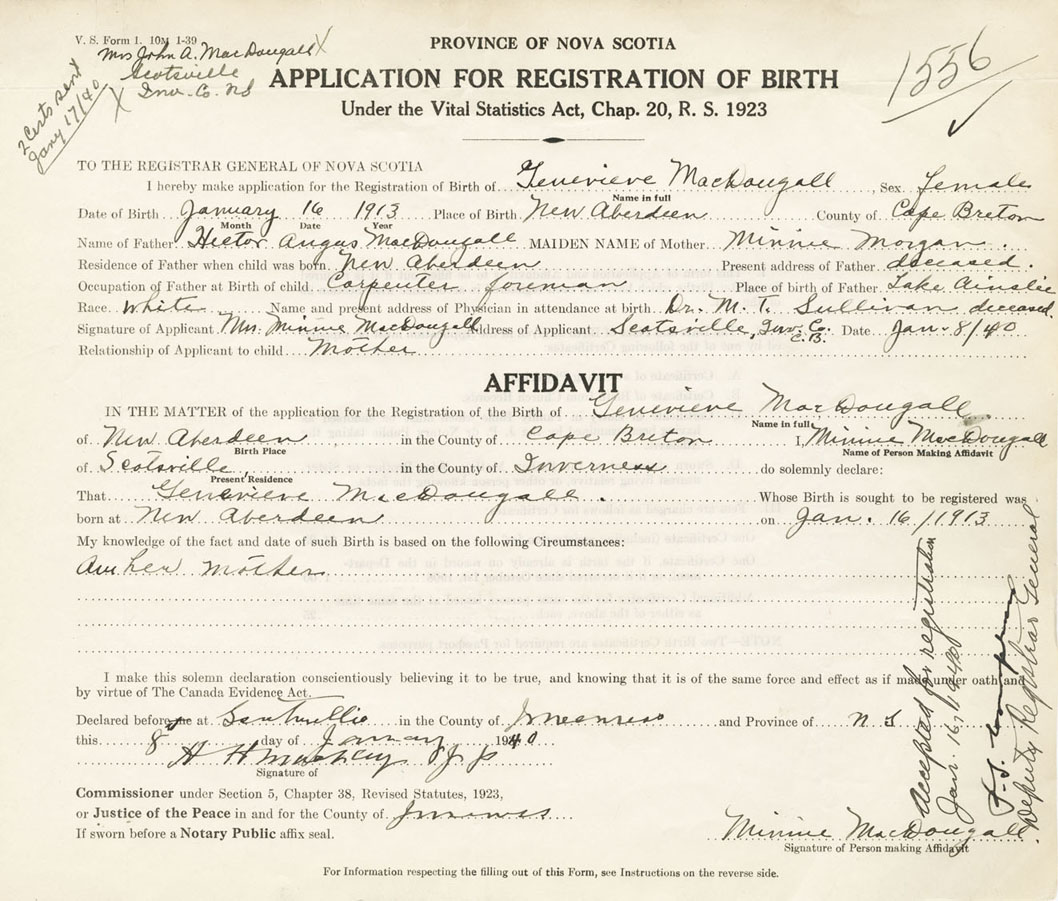 V. S. Form 1. 10M 1-39
Mrs John A. MacDougall X
Scotsville
Inv. Co. NS
X
2 Certs sent
Jany 17/40
1556
PROVINCE OF NOVA SCOTIA
APPLICATION FOR REGISTRATION OF BIRTH
Under the Vital Statistics Act, Chap. 20, R. S. 1923
TO THE REGISTRAR GENERAL OF NOVA SCOTIA
I hereby make application for the Registration of Birth of Genevieve MacDougall, Sex Female
Name in full
Date of Birth January 16 1913 Place of Birth New Aberdeen County of Cape Breton
Month Date Year
Name of Father Hector Angus MacDougall MAIDEN NAME of Mother Minnie Morgan.
Residence of Father when child was born New Aberdeen Present address of Father deceased.
Occupation of Father at Birth of child Carpenter foreman Place of birth of Father Lake Ainslie
Race White Name and present address of Physician in attendance at birth Dr. M. T. Sullivan deceased.
Signature of Applicant Mrs. Minnie MacDougall Address of Applicant Scotsville, Inv. Co. C.B. Date Jan. 8/40
Relationship of Applicant to child Mother
AFFIDAVIT
IN THE MATTER of the application for the Registration of the Birth of Genevieve MacDougall
Name in full
of New Aberdeen in the County of Cape Breton I, Minnie MacDougall
Birth Place Name of Person Making Affidavit
of Scotsville, in the County of Inverness do solemnly declare:
Present Residence
That Genevieve MacDougall. Whose Birth is sought to be registered was
born at New Aberdeen on Jan. 16/1913
My knowledge of the fact and date of such Birth is based on the following Circumstances:
Am her mother
I make this solemn declaration conscientiously believing it to be true, and knowing that it is of the same force and effect as if made under oath and
by virtue of The Canada Evidence Act.
Declared before me at in the County of Inverness and Province of N S
this 8 day of January 1940
H H MacKay J P
Signature of
Commissioner under Section 5, Chapter 38, Revised Statutes, 1923,
or Justice of the Peace in and for the County of Inverness
If sworn before a Notary Public affix seal.
Minnie MacDougall.
Signature of Person making Affidavit
Accepted for registration
Jan. 16, 1940
Deputy Registrar General
For Information respecting the filling out of this Form, see Instructions on the reverse side.